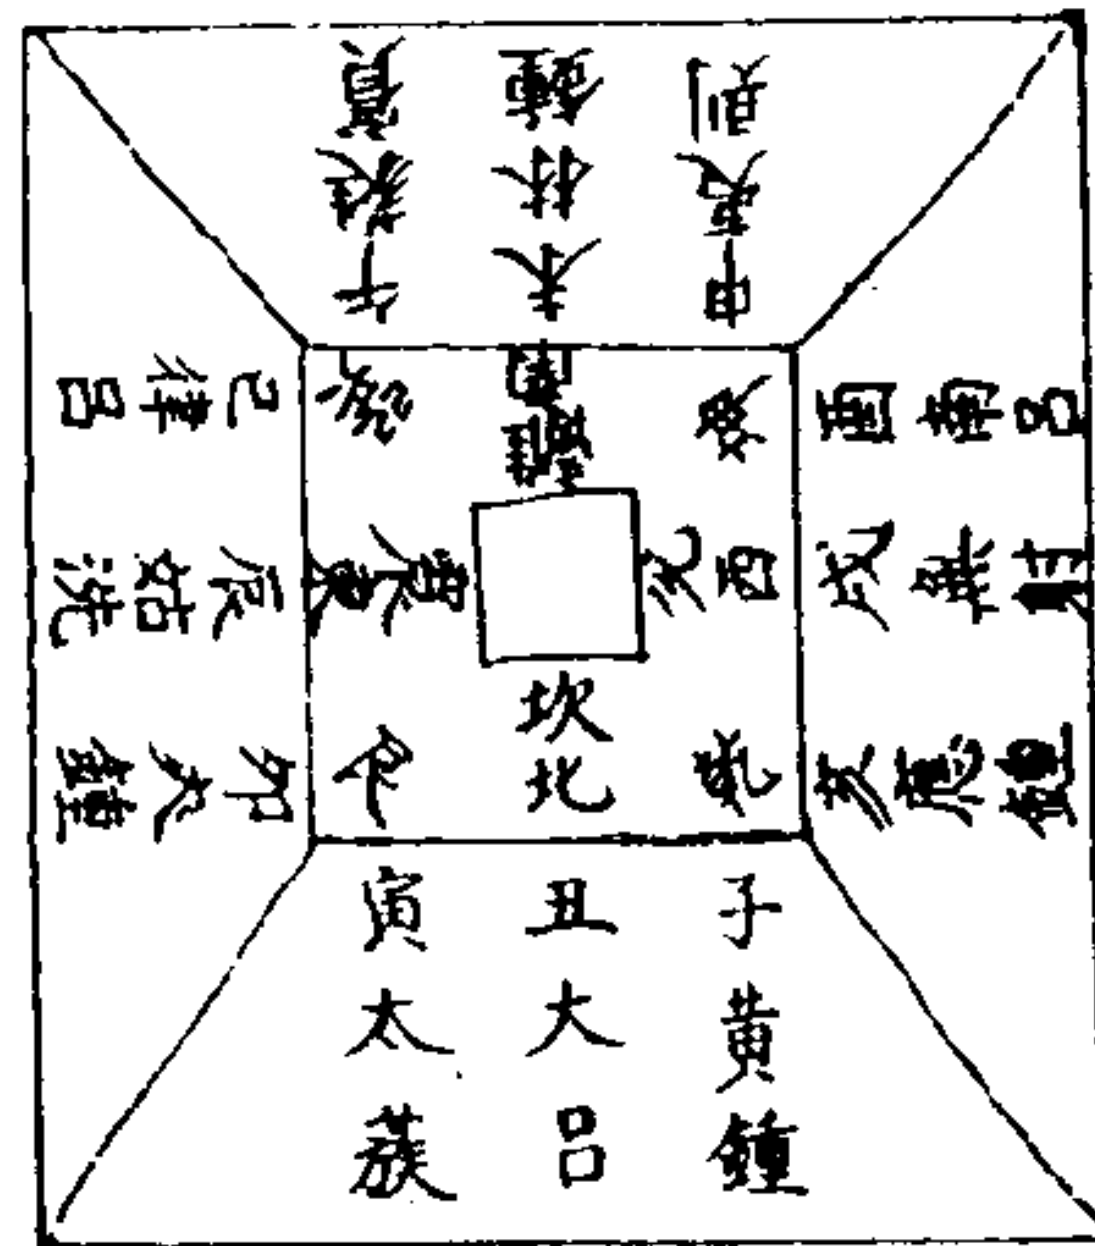 子黄鍾
丑大呂
寅太蔟
卯夾鍾
辰姑洗
巳律呂
午蕤賓
未林鍾
申夷則
酉南呂
戌無射
亥應鍾
坎北
艮
震東
巽
離南
兌西
乾